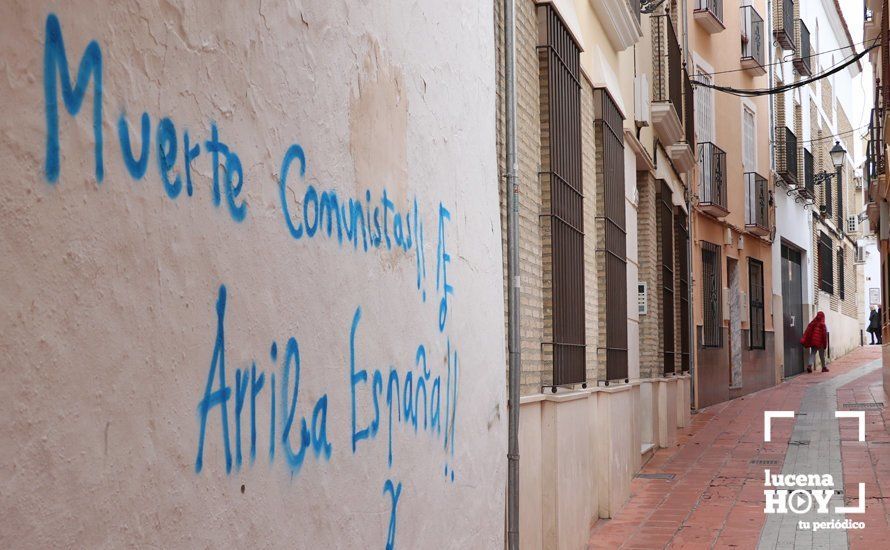 Muerte Comunistas!!
Arriba España!!
lucena
HOY
tu periódico